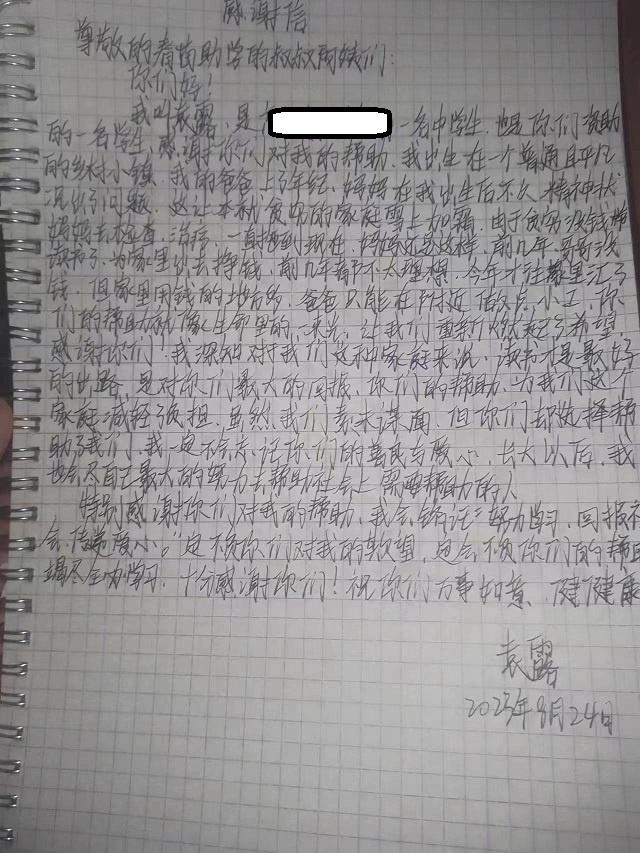 感谢信
尊敬的春苗助学的叔叔阿姨们:
你们好!
我叫袁露,是 一名中学生.也是你们资助
的一名学生,感谢你们对我的帮助.我出生在一个普通且平凡
的乡村小镇.我的爸爸上了年纪.妈妈在我出生后不久精神状
况出了问题.这让本就贫穷的家庭雪上加霜.由于贫穷没钱带
妈妈去检查.治疗,一直拖到现在,妈妈还是这样,前几年,哥哥没
读书了.为家里出去挣钱,前几年都不太理想,今年才往家里汇了
钱,但家里用钱的地方多,爸爸只能在附近做点小工,你
们的帮助就像生命里的一束光,让我们重新燃起了希望,
感谢你们.我深知对于我们这种家庭来说,读书才是最好
的出路.是对你们最大的回报,你们的帮助.为我们这个
家庭减轻负担.虽然我们素未谋面.但你们却选择帮
助了我们,我一定不会忘记你们的善良与爱心,长大以后,我
也会尽自己最大的努力去帮助社会上需要帮助的人
特别感谢你们对我的帮助,我会铭记"努力学习,回报社
会,传递爱心。"定不负你们对我的期望,更会不负你们的帮助
竭尽全力学习.十分感谢你们!祝你们万事如意、健健康康
袁露
2023年8月24日